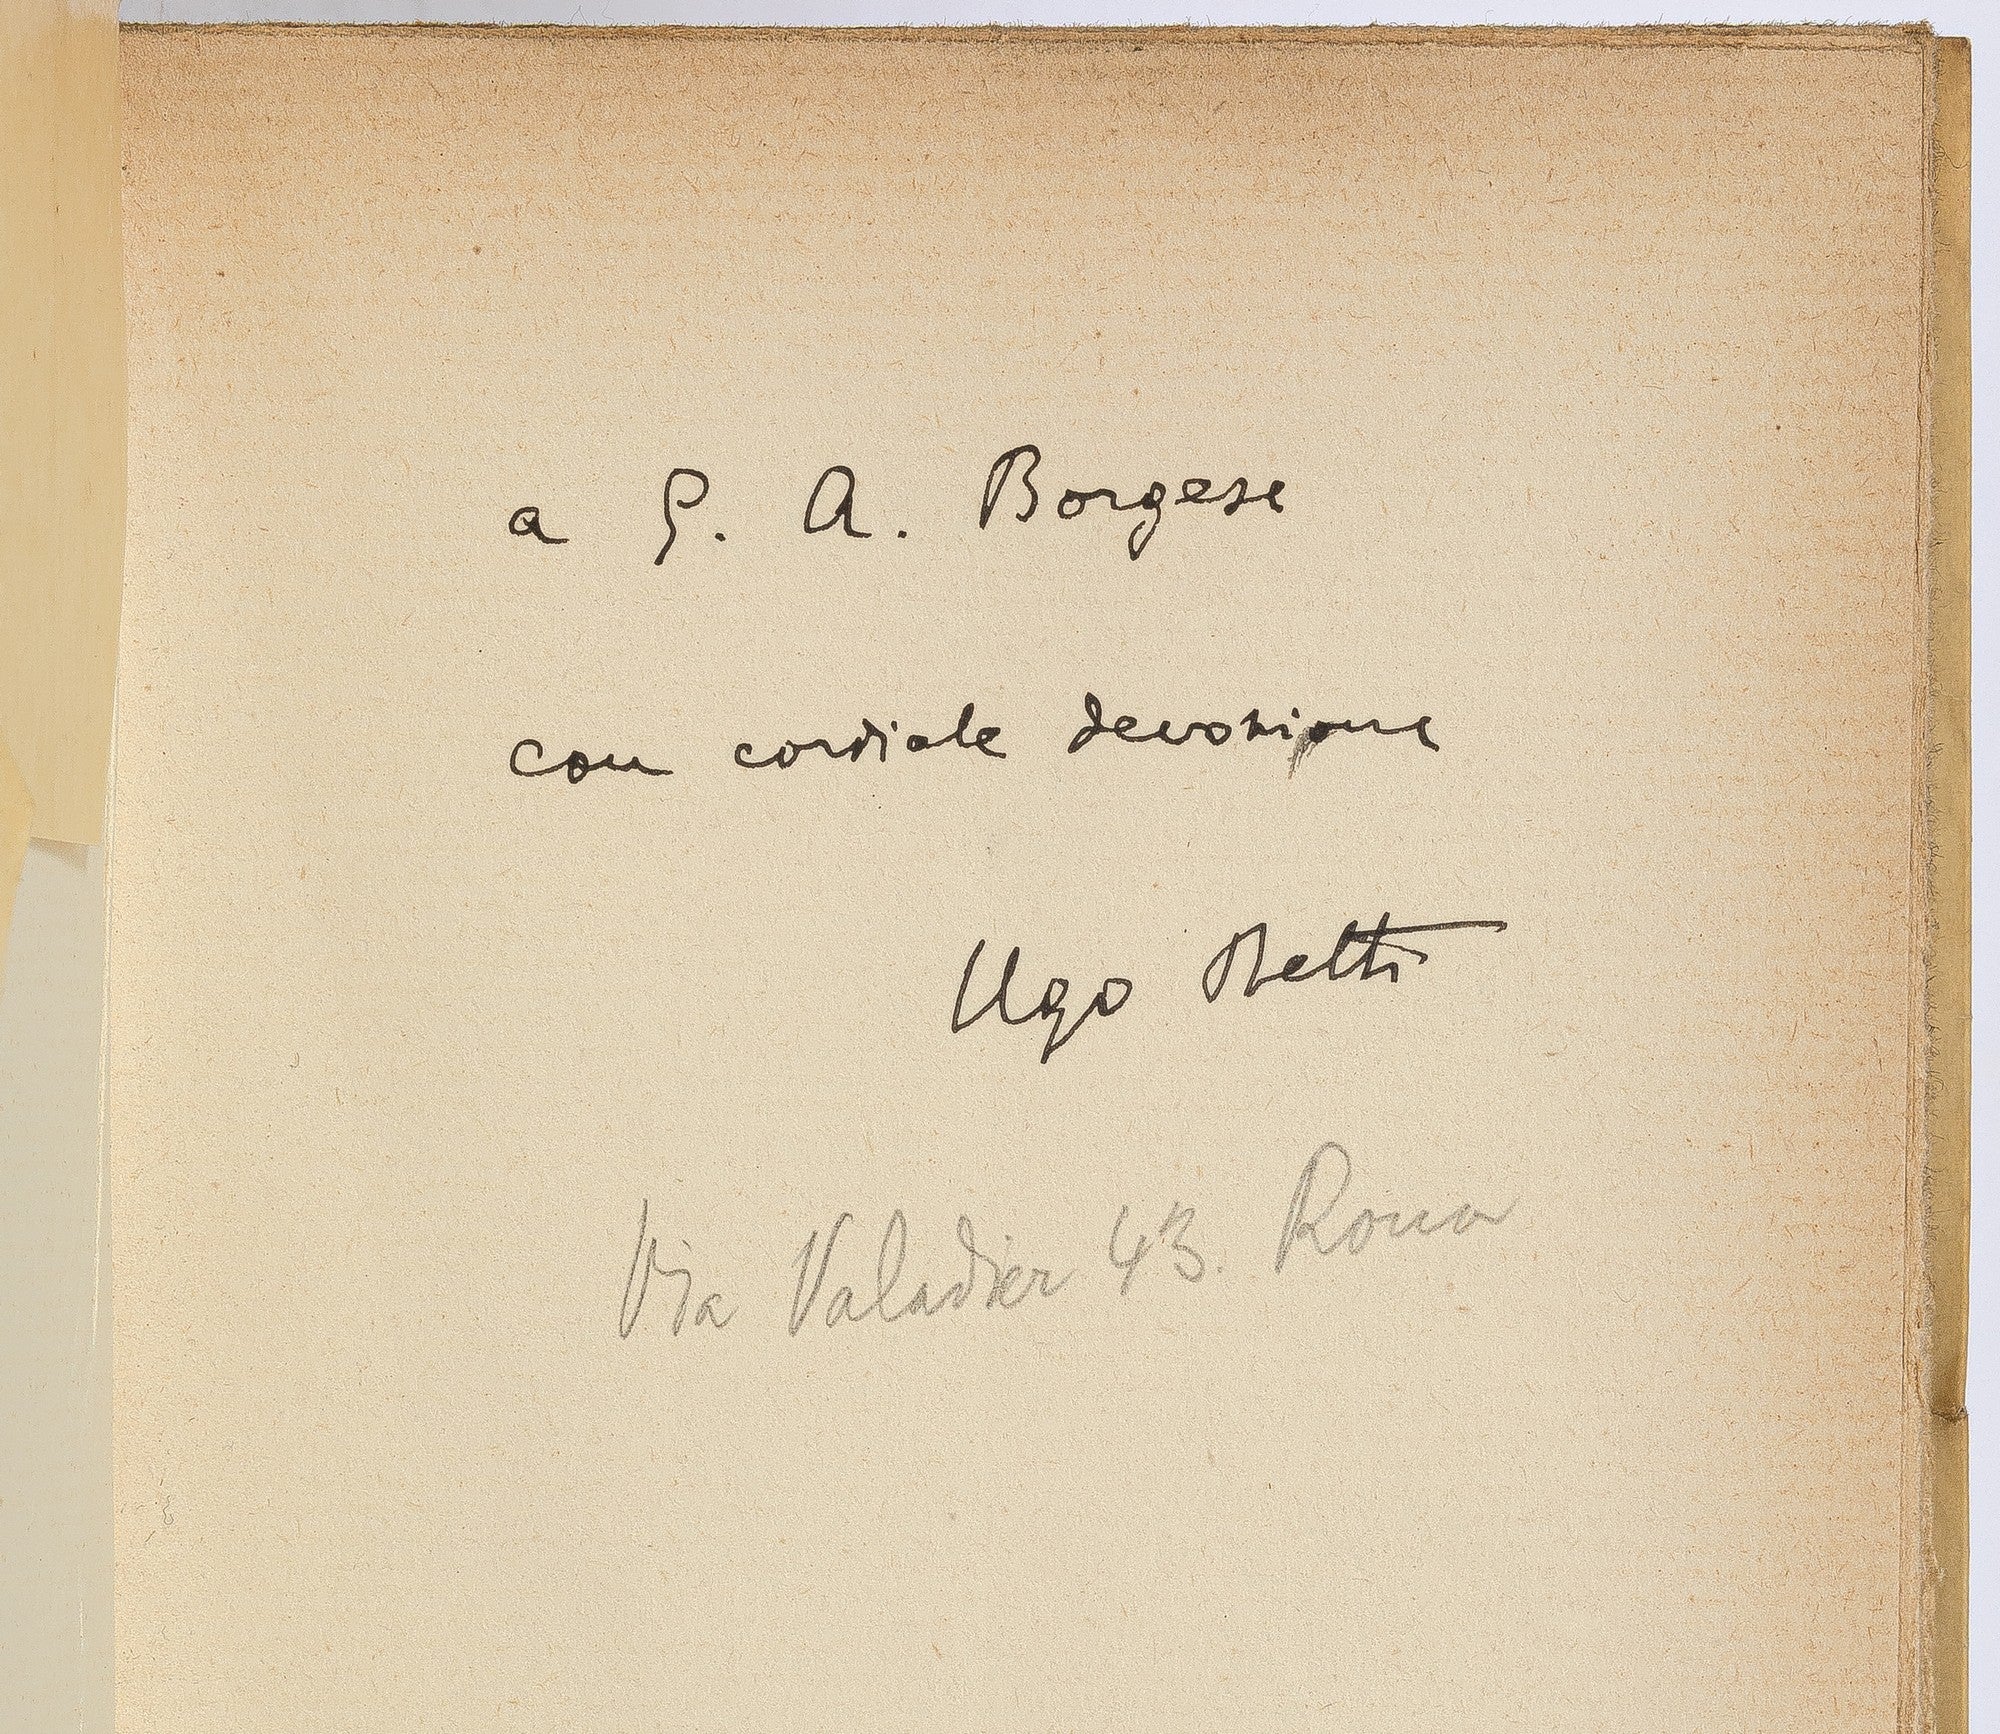 a G. A. Borgese
con cordiale devozione
Ugo Betti
Via Valadier 43. Roma